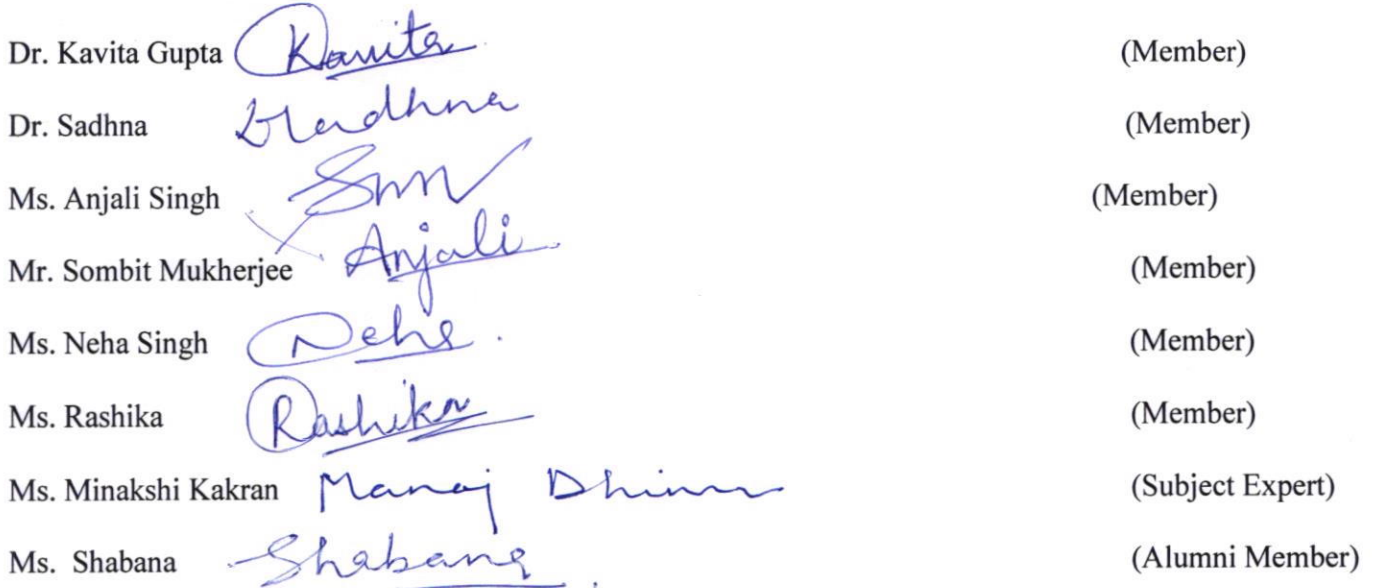 Dr. Kavita Gupta Kavita (Member)
Dr. Sadhna Sadhna (Member)
Ms. Anjali Singh (Member)
Mr. Sombit Mukherjee Anjali (Member)
Ms. Neha Singh Neha (Member)
Ms. Rashika Rashika (Member)
Ms. Minakshi Kakran Manoj (Subject Expert)
Ms. Shabana Shabana (Alumni Member)